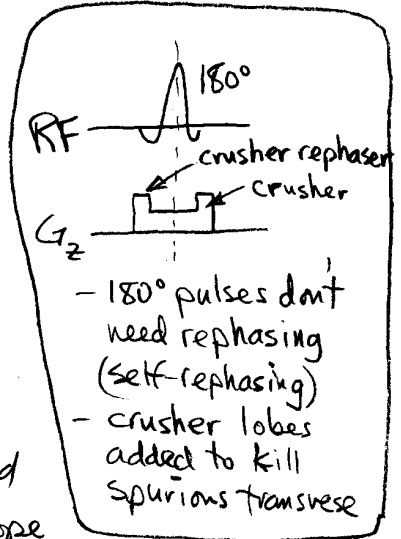 180°
RF
crusher rephaser
crusher
Gz
- 180° pulses don't
need rephasing
(self-rephasing)
- crusher lobes
added to kill
spurious transvese
d
ope